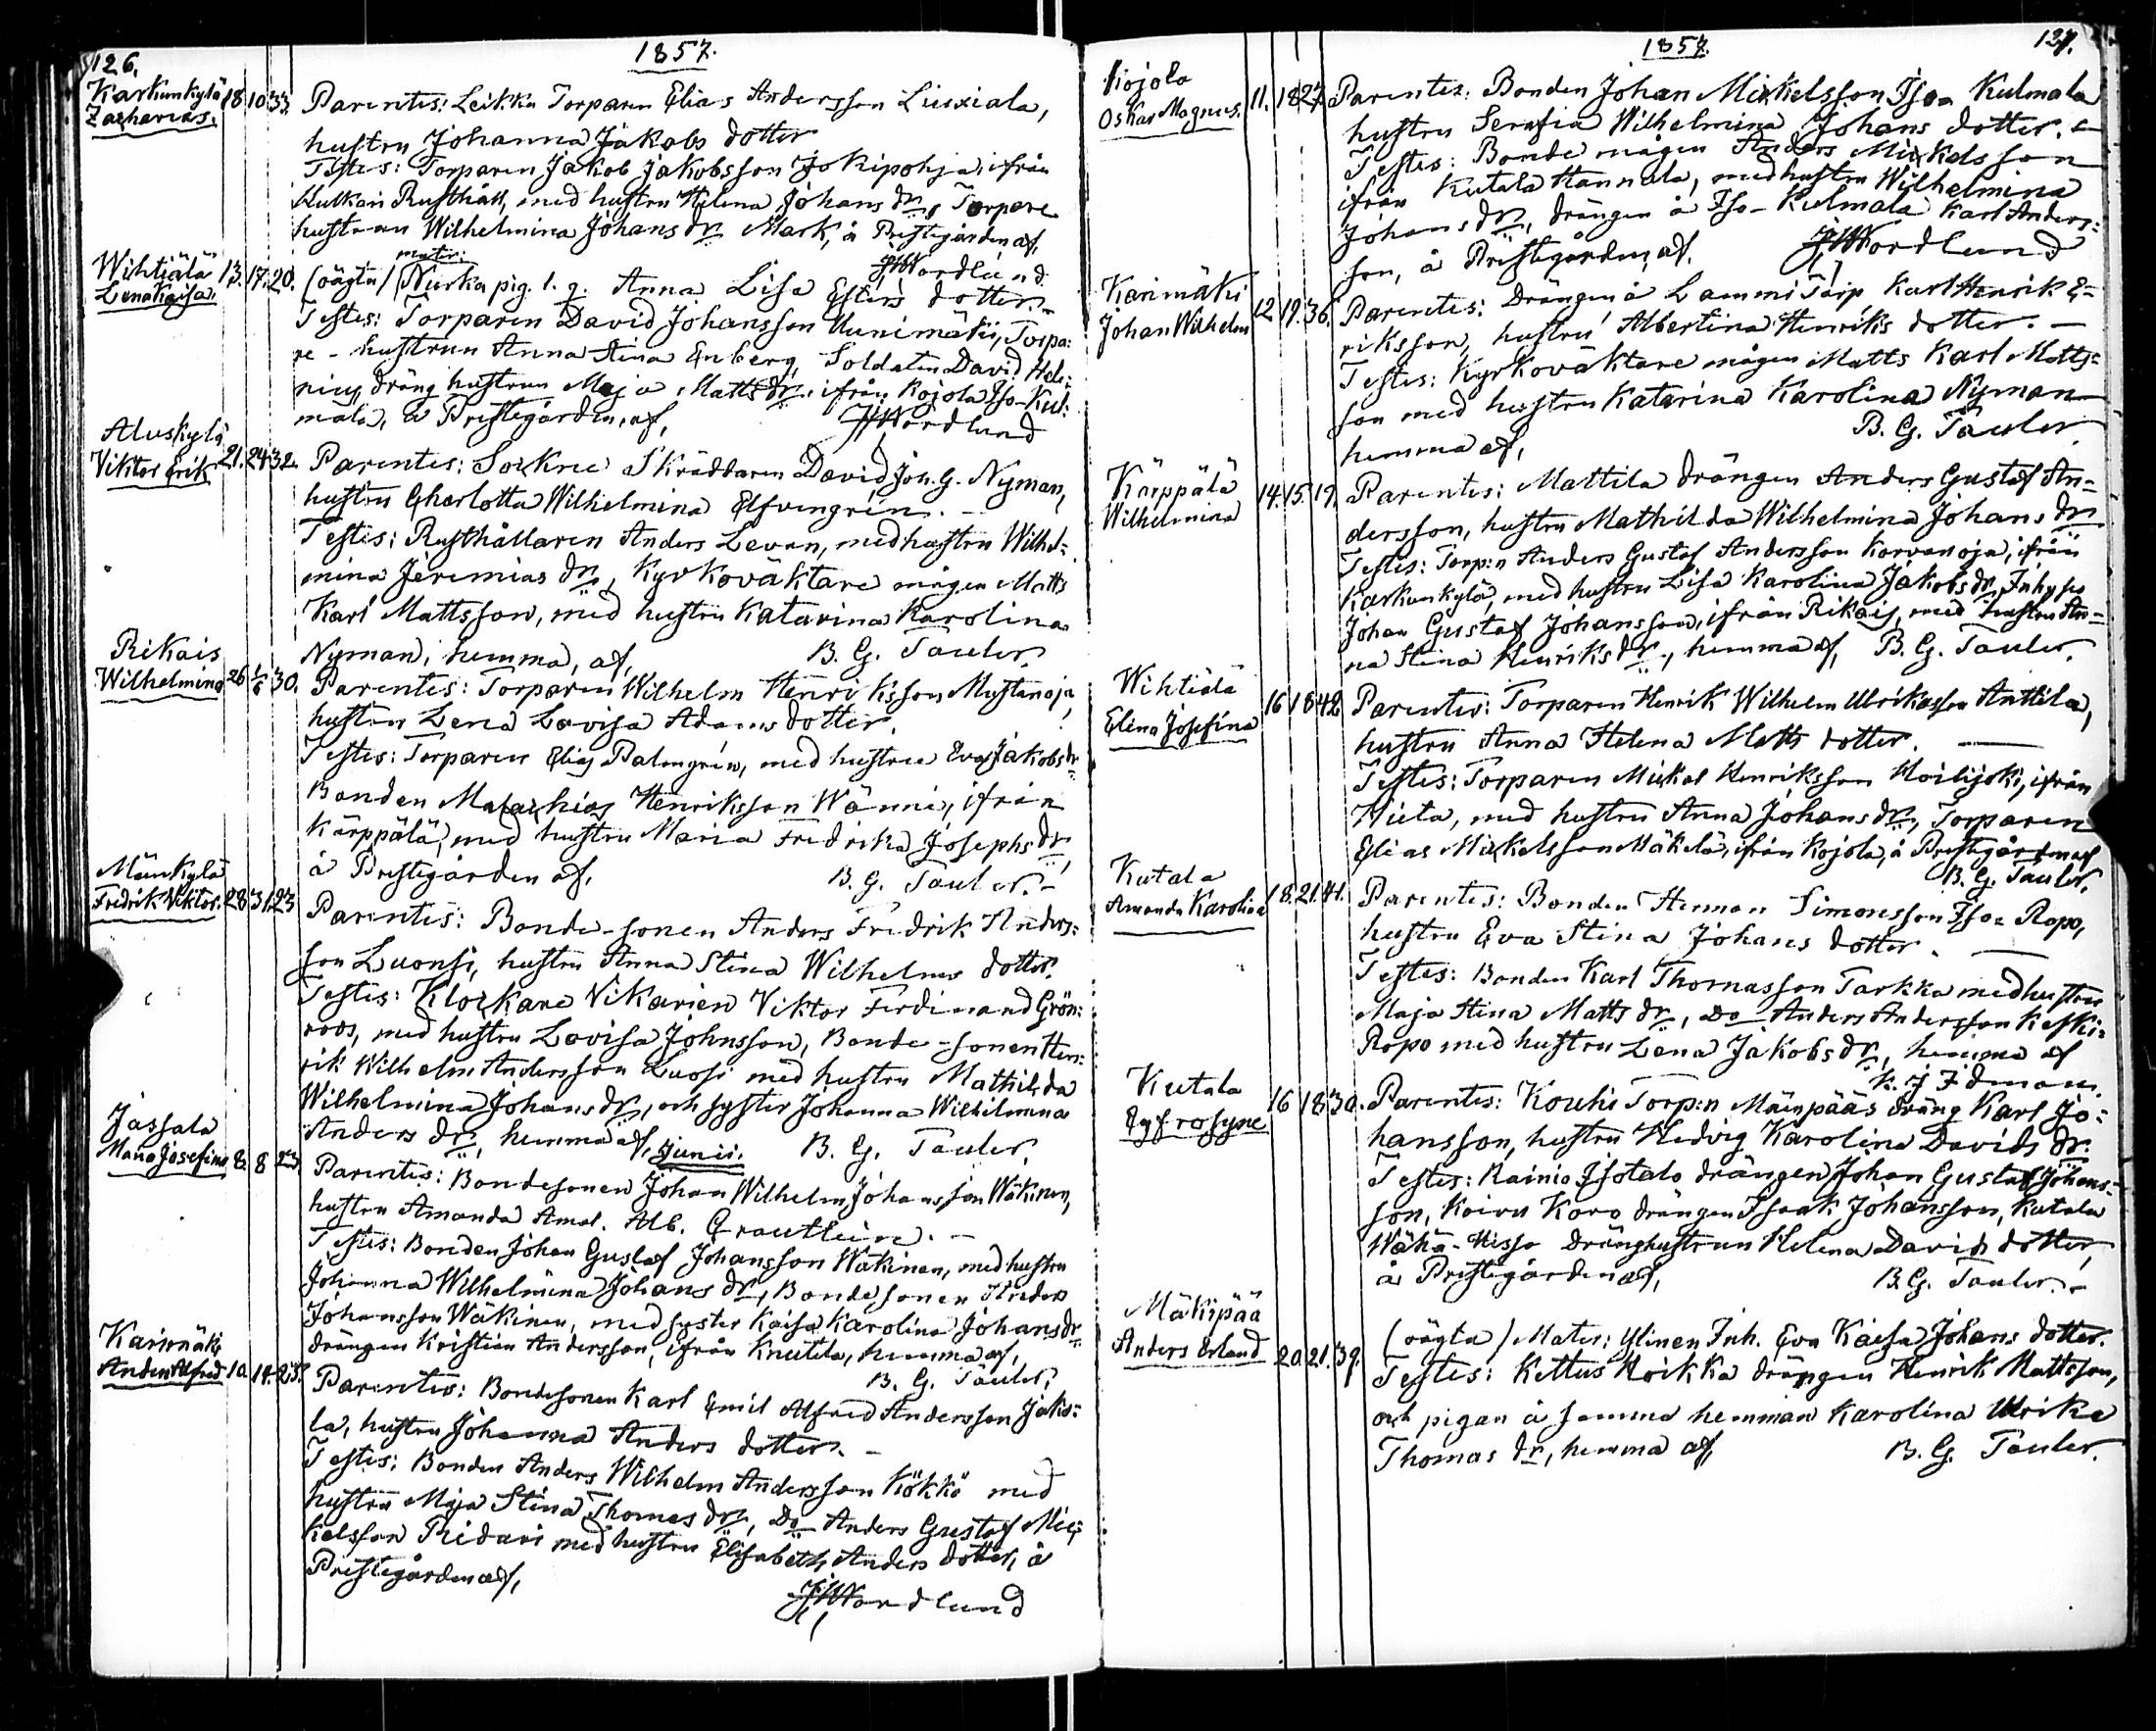 126.
1857.
Karkunkylä
Zacharias.
18 10 33.
Parentes: Leikku Torparen Elias Andersson Liuxiala,
hustru Johanna Jakobs dotter
Testes: Torparen Jakob Jakobsson Jokipohja, ifrån
Kutkari Rusthåll, med hustru Helena Johans dr, Torpare
hustrun Wilhelmina Johans dr Mark, å Prestegården af,
JWNordlund.
Wihtiälä
Lena Kaisa.
13. 17. 20.
mater:
(oägta) Nurka pig. l. q. Anna Lisa Esters dotter.
Testes: Torparen David Johansson Uunimäki, Torpa:
re-hustrun Anna Stina Enberg, Soldaten David Hele:
nius, dräng hustrun Maja Matts dr, ifrån Kojola Iso-Kul:
mala, å Prestegården, af,
JWNordlund
Aluskylä
Viktor Erik
21. 24 32.
Parentes: Sockne Skräddaren David Joh. G. Nyman,
hustru Charlotta Wilhelmina Elfvengrén. –
Testes: Rusthållaren Anders Levan, med hustru Wilhel:
mina Jeremias dr, Kyrkoväktare mågen Matts
Karl Mattsson, med hustru Katarina Karolina
Nyman, hemma, af,
B. G. Tauler.
Rikais
Wilhelmina
26 1/6 30.
Parentes: Torparen Wilhelm Henriksson Mustanoja,
hustru Lena Lovisa Adams dotter.
Testes: Torparen Elias Palmgrén, med hustru Eva Jakobs dr
Bonden Malachias Henriksson Wänni, ifrån
Kärppälä, med hustru Maria Fredrika Josephs dr,
å Prestegården af,
B. G. Tauler. –
Mäinkylä
Fredrik Viktor.
28 31. 23
Parentes: Bonde-sonen Anders Fredrik Anders:
son Luonsi, hustru Anna Stina Wilhelms dotter.
Testes: Klockare Vikarien Viktor Ferdinand Grön:
roos, med hustru Lovisa Johnsson, Bonde-sonen Hen:
rik Wilhelm Andersson Luosi med hustru Mathilda
Wilhelmina Johans dr, och syster Johanna Wilhelmina
Anders dr, hemma af,
B. G. Tauler.
Junii.
Jassala
Maria Josefina
8. 8 23.
Parentes: Bondesonen Johan Wilhelm Johansson Wäkinen,
hustru Amanda Amal. Alb. Grautlein. –
Testes: Bonden Johan Gustaf Johansson Wäkinen, med hustru
Johanna Wilhelmina Johans dr, Bondesonen Anders
Johansson Wäkinen, med syster Kaisa Karolina Johans dr
drängen Kristian Andersson, ifrån Knutila, hemma af,
B. G. Tauler.
Karimäki
Anders Alfred
10. 14. 25.
Parentes: Bondesonen Karl Emil Alfred Andersson Jako:
la, hustru Johanna Anders dotter. –
Testes: Bonden Anders Wilhelm Andersson Kökkö med
hustru Maja Stina Thomas dr, Do Anders Gustaf Mic:
kelsson Ridari med hustru Elisabeth Anders dotter, å
Prestegården af,
JWNordlund
1857.
127.
Kojola
Oskar Magnus.
11. 18 27.
Parentes: Bonden Johan Mickelsson Iso-Kulmala
hustru Serafia Wilhelmina Johans dotter. –
Testes: Bonde mågen Anders Mickelsson
ifrån Kutala Hannula, med hustru Wilhelmina
Johans dr, drängen å Iso-Kulmala Karl Anders:
son, å Prestgården, af,
JWNordlund
Karimäki
Johan Wilhelm
12. 19. 36.
Parentes: Drängen å Lammi Torp Karl Henrik E-
riksson, hustru Albertina Henriks dotter. –
Testes: Kyrkoväktare mågen Matts Karl Matts:
son med hustru Katarina Karolina Nyman
hemma af,
B. G. Tauler
Kärppälä
Wilhelmina
14. 15. 19.
Parentes: Mattila drängen Anders Gustaf An-
dersson, hustru Mathilda Wilhelmina Johans dr
Testes: Torp:n Anders Gustaf Andersson Korvanoja, ifrån
Karkunkylä, med hustru Lisa Karolina Jakobs dr, Inhyses
Johan Gustaf Johansson, ifrån Rikais, med hustru An-
na Stina Henriks dr, hemma af,
B. G. Tauler.
Wihtiälä
Elena Josefina
16 18 42
Parentes: Torparen Henrik Wilhelm Ulrikasson Anttila,
hustru Anna Helena Matts dotter. –
Testes: Torparen Mickel Henriksson Hoilijoki, ifrån
Hiuta, med hustru Anna Johans dr, Torparen
Elias Mickelsson Mäkelä, ifrån Kojola, å Prestgården af
B. G. Tauler.
Kutala
Amanda Karolina
18. 21. 41.
Parentes: Bonden Herman Simonsson Iso Ropo,
hustru Eva Stina Johans dotter. –
Testes: Bonden Karl Thomasson Tarkka med hustru
Maja Stina Matts dr, Do Anders Andersson Keski-
Ropo med hustru Lena Jakobs dr, hemma af
K. J. Idman.
Kutala
Eyfrosyne
16 18 30.
Parentes: Kouhi Torp:n Mäenpääs dräng Karl Jo-
hansson, hustru Hedvig Karolina Davids dr.
Testes: Rainio Isotalo drängen Johan Gustaf Johans-
son, Koivu Koro drängen Isaak Johansson, Kutala
Wähä-Hissa Dränghustrun Helena Davids dotter,
å Prestegården af,
B. G. Tauler. –
Mäkipää
Anders Erland
20. 21. 39.
(oägta) Mater: Ylinen Inh. Eva Kaisa Johans dotter.
Testes: Kettus Hoikka drängen Henrik Mattsson,
och pigan å samma hemman Karolina Ulrika
Thomas dr, hemma af,
B. G. Tauler.